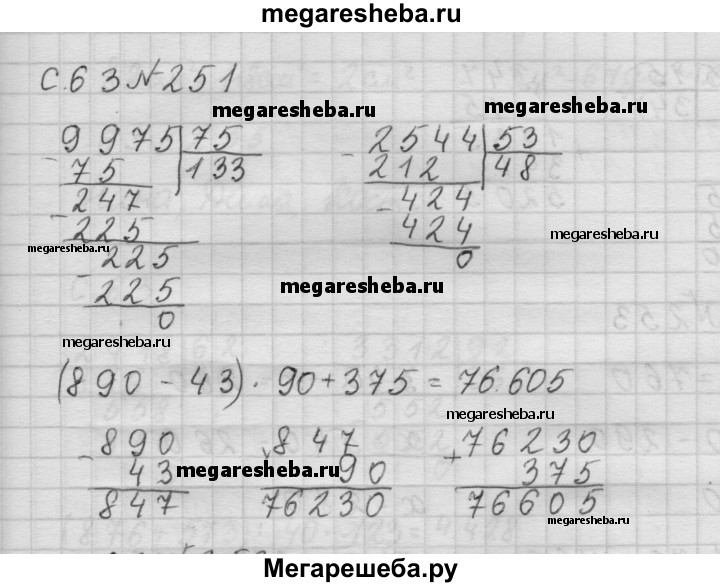 megaresheba.ru
с. 63 № 251
megaresheba.ru
megaresheba.ru
9975 | 75
- 75 | 133
247
- 225
megaresheba.ru
225
- 225
0
megaresheba.ru
- 2544 | 53
212 | 48
- 424
424
0
megaresheba.ru
megaresheba.ru
(890 - 43) · 90 + 375 = 76.605
megaresheba.ru
- 890
43
847
megaresheba.ru
× 847
90
76230
+ 76230
375
76605
megaresheba.ru
N 253
Мегарешеба.ру